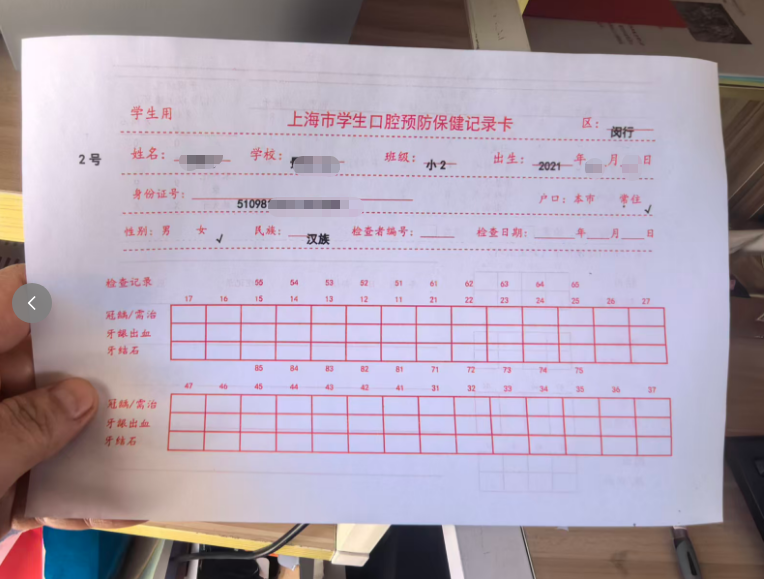 学生用 上海市学生口腔预防保健记录卡 区: 闵行
2号 姓名: 学校: 班级: 小2 出生: 2021 年 月 日
身份证号: 51098 户口: 本市 常住 ✓
性别: 男 女 ✓ 民族: 汉族 检查者编号: 检查日期: 年 月 日
检查记录 55 54 53 52 51 61 62 63 64 65
17 16 15 14 13 12 11 21 22 23 24 25 26 27
冠龋/需治
牙龈出血
牙结石
85 84 83 82 81 71 72 73 74 75
47 46 45 44 43 42 41 31 32 33 34 35 36 37
冠龋/需治
牙龈出血
牙结石